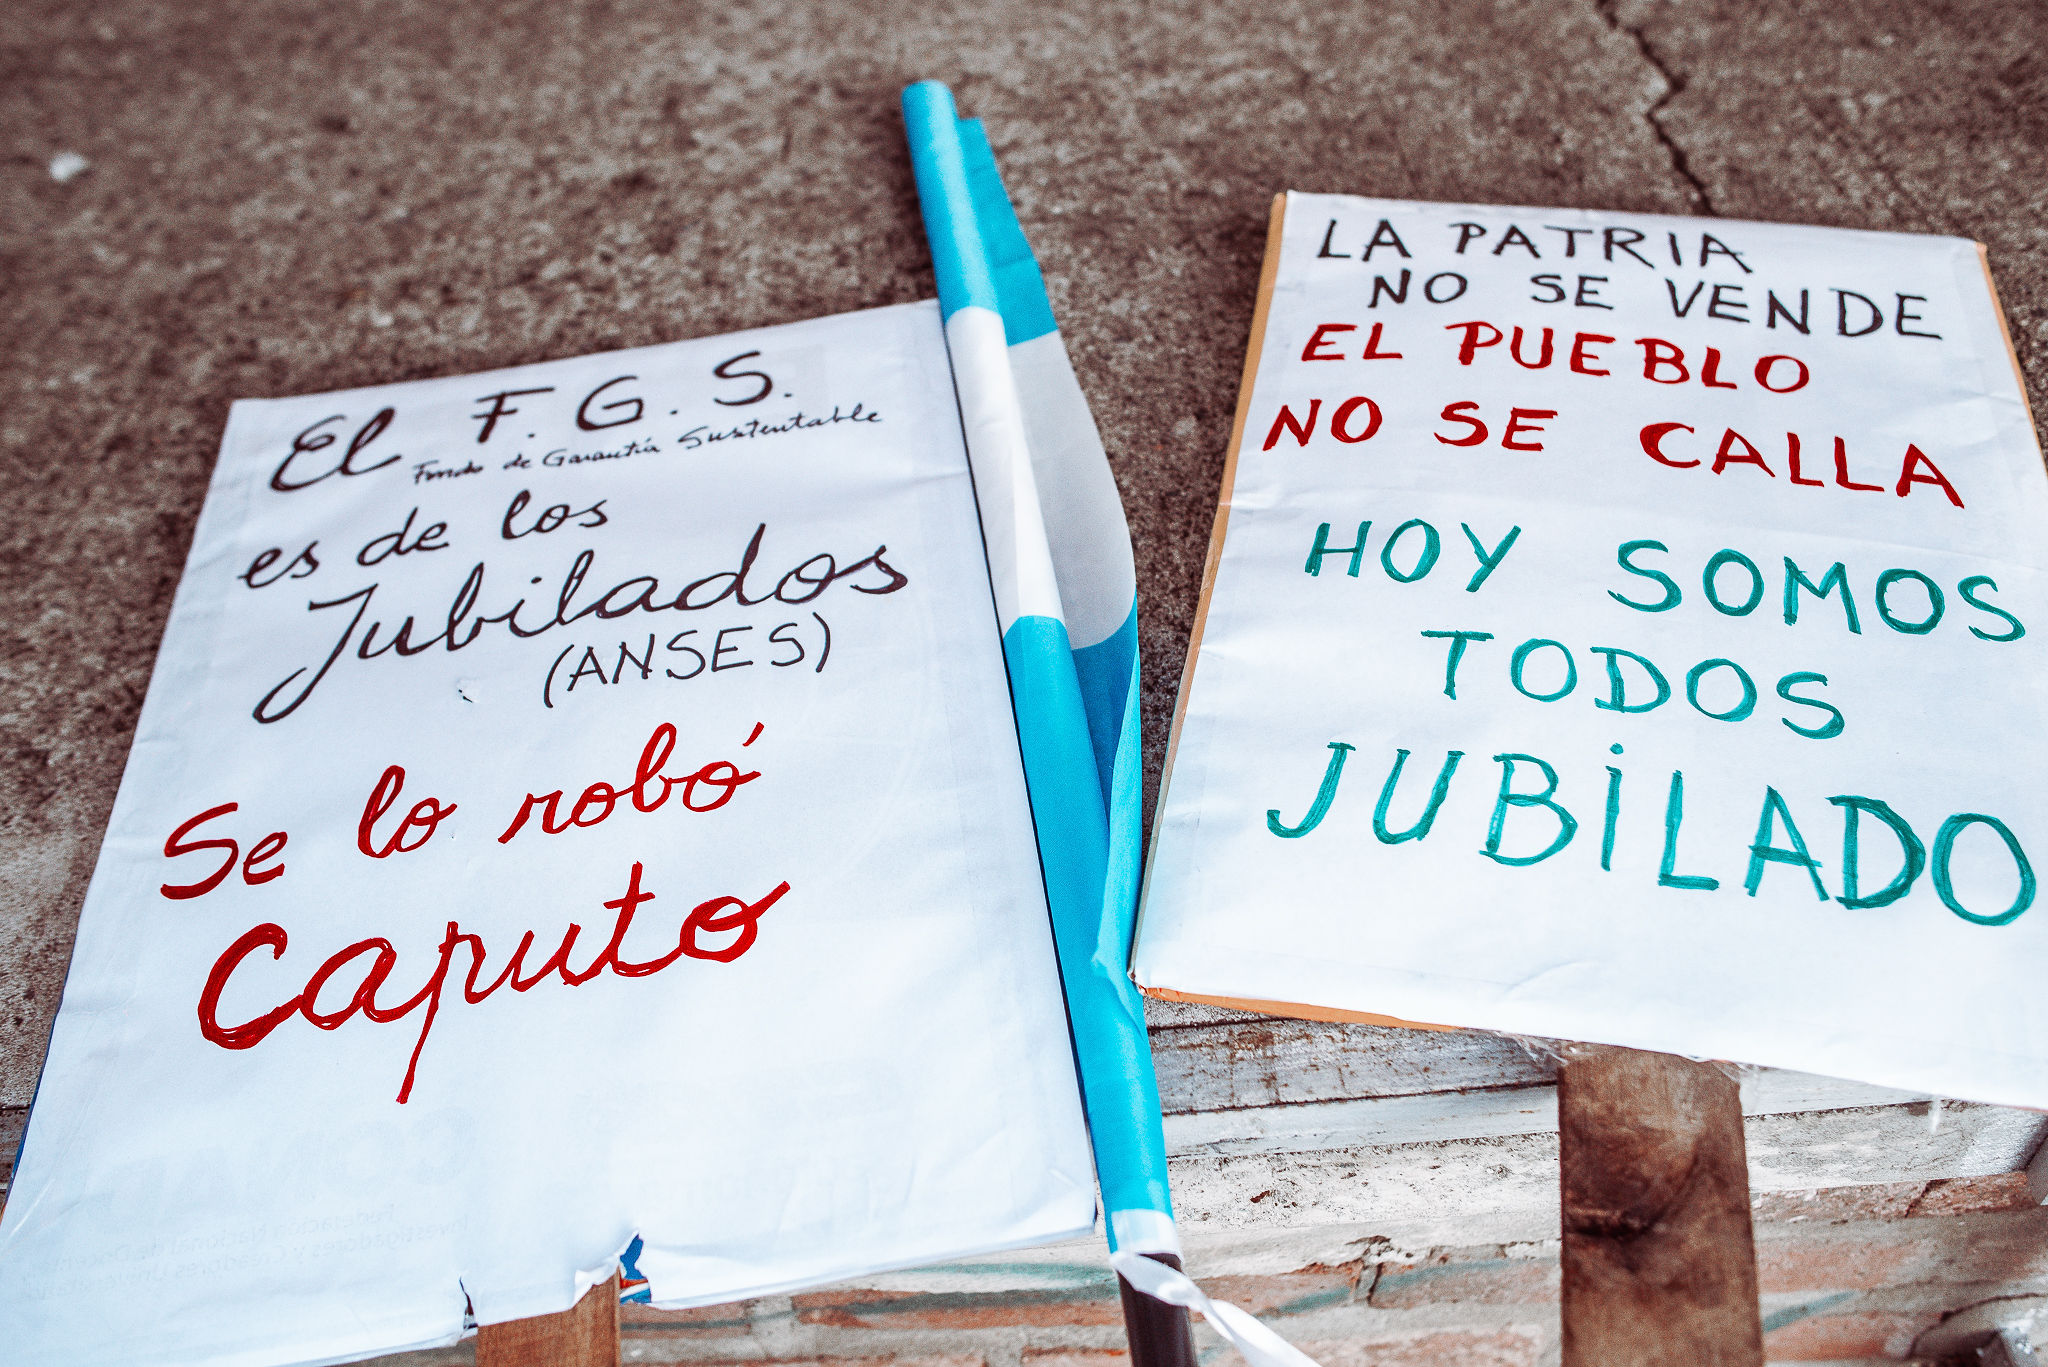 El F.G.S.
Fondo de Garantía Sustentable
es de los
Jubilados
(ANSES)
Se lo robó
Caputo
LA PATRIA
NO SE VENDE
EL PUEBLO
NO SE CALLA
HOY SOMOS
TODOS
JUBiLADO